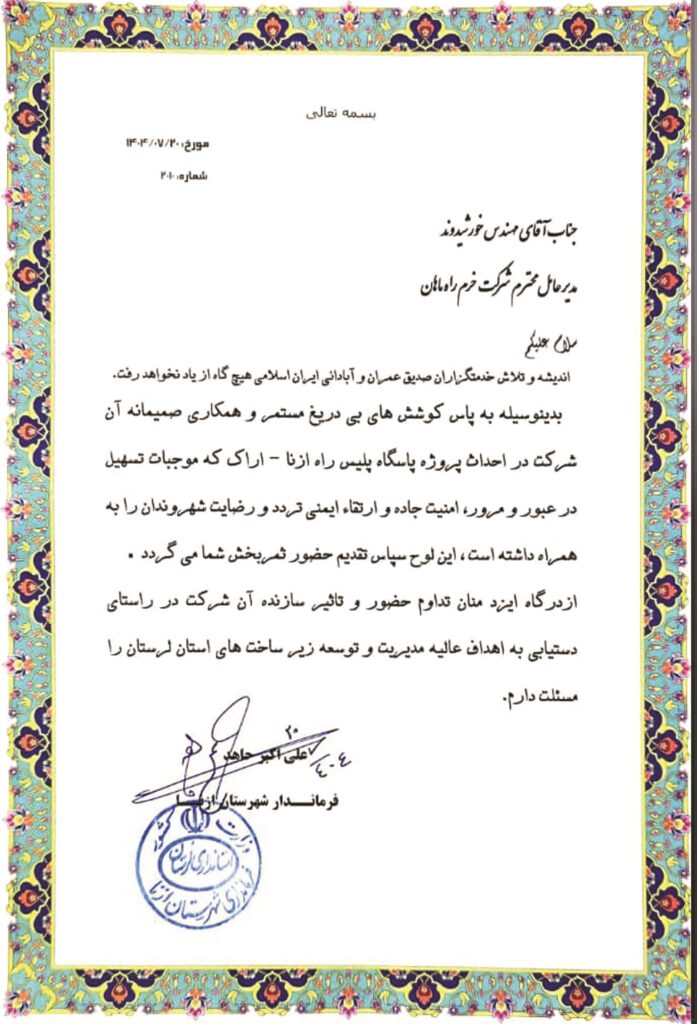 بسمه تعالی
مورخ: ۱۴۰۴/۰۷/۲۰
شماره: ۲۰۱۰
جناب آقای مهندس خورشیدوند
مدیرعامل محترم شرکت خرم راه ماهان
سلام علیکم
اندیشه و تلاش خدمتگزاران صدیق عمران و آبادانی ایران اسلامی هیچ گاه از یاد نخواهد رفت.
بدینوسیله به پاس کوشش های بی دریغ مستمر و همکاری صمیمانه آن
شرکت در احداث پروژه پاسگاه پلیس راه ازنا – اراک که موجبات تسهیل
در عبور و مرور، امنیت جاده و ارتقاء ایمنی تردد و رضایت شهروندان را به
همراه داشته است، این لوح سپاس تقدیم حضور ثمربخش شما می گردد .
ازدرگاه ایزد منان تداوم حضور و تاثیر سازنده آن شرکت در راستای
دستیابی به اهداف عالیه مدیریت و توسعه زیر ساخت های استان لرستان را
مسئلت دارم.
علی اکبر جاهد
فرمانـدار شهرستان ازنـا
وزارت کشور
استانداری لرستان
فرمانداری شهرستان ازنا